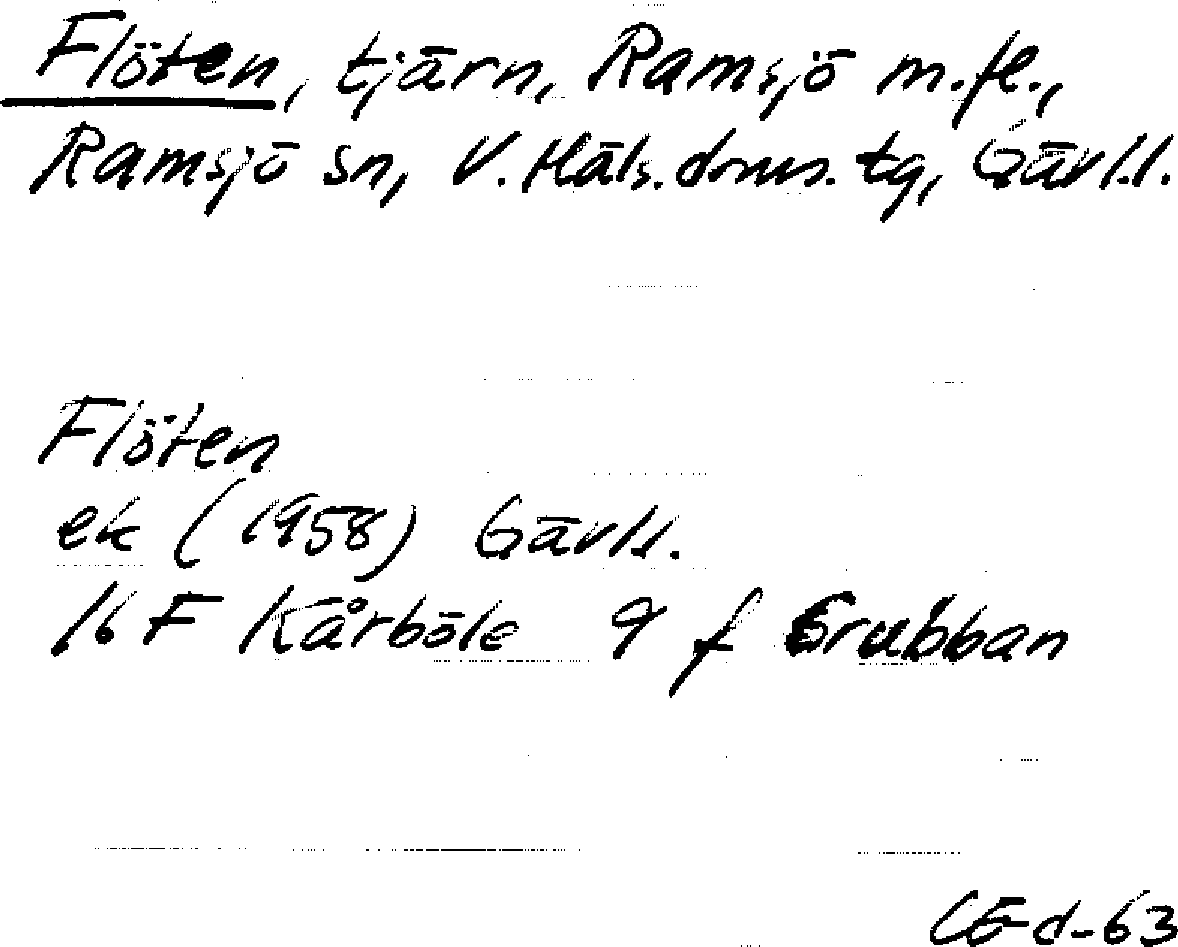 Flöten, tjärn, Ramsjö m.fl.,
Ramsjö sn, V. Häls. dms. tg, Gävl.l.
Flöten
ek (1958) Gävl.l.
16 F Kårböle 9 f Grubban
CE-d-63